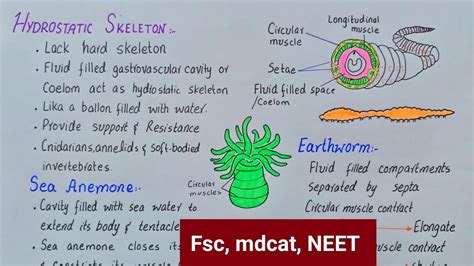 HYDROSTATIC SKELETON:-
• Lack hard skeleton
• Fluid filled gastrovascular cavity or
Coelom act as hydrostatic skeleton
• Lika a ballon filled with water.
• Provide support & Resistance
• Cnidarians, annelids & soft-bodied
invertebrates.
Sea Anemone:-
• Cavity filled with sea water to
extend its body & tentacle
• Sea anemone closes its
Circular
muscle
Longitudinal
muscle
Setae
Fluid filled space
/Coelom
Circular
muscles
Earthworm:-
Fluid filled compartments
separated by septa
Circular muscle contract
Elongate
muscle contract
Fsc, mdcat, NEET